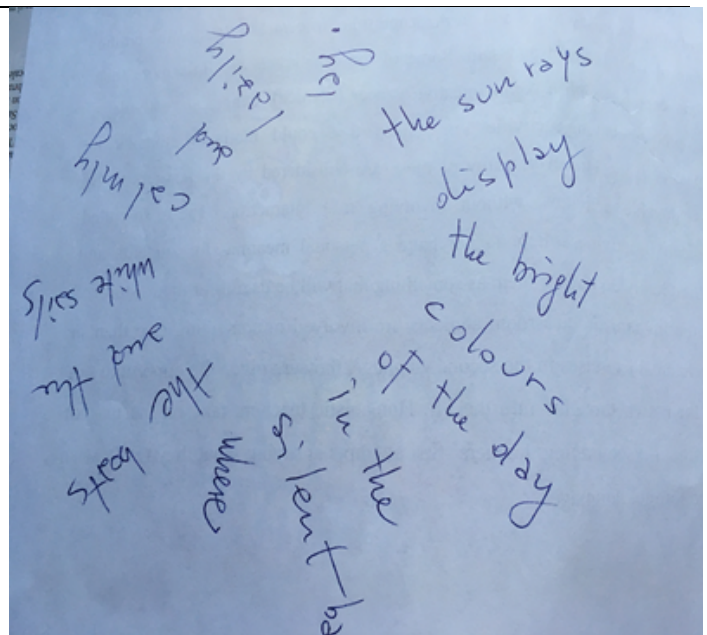 the sun rays
display
the bright
colours
of the day
in the
silent ba
where
the boats
and the
white sails
calmly
and lazily
lay.